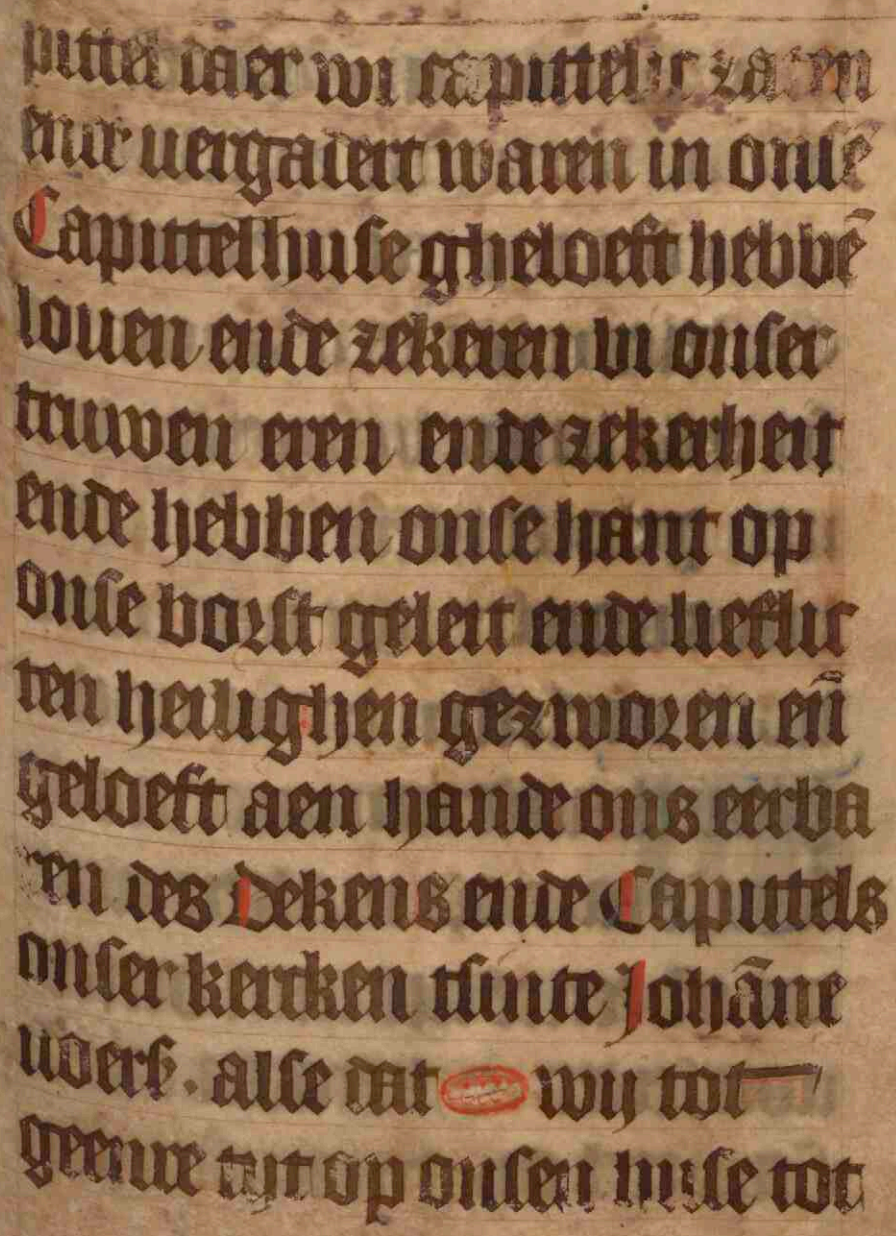 pittel daer wi capittelic zaten
ende uergadert waren in onsē
Capittelhuse gheloeft hebbē
louen ende zekeren bi onser
truwen eren ende zekerheit
ende hebben onse hant op
onse borst geleit ende lieflic
ten heilighen gezworen en̄
geloeft aen hande ons eerba
ren des Dekens ende Capittels
onser kercken tsinte Johāne
uoers. alse dat wij tot
geenre tijt op onsen huse tot